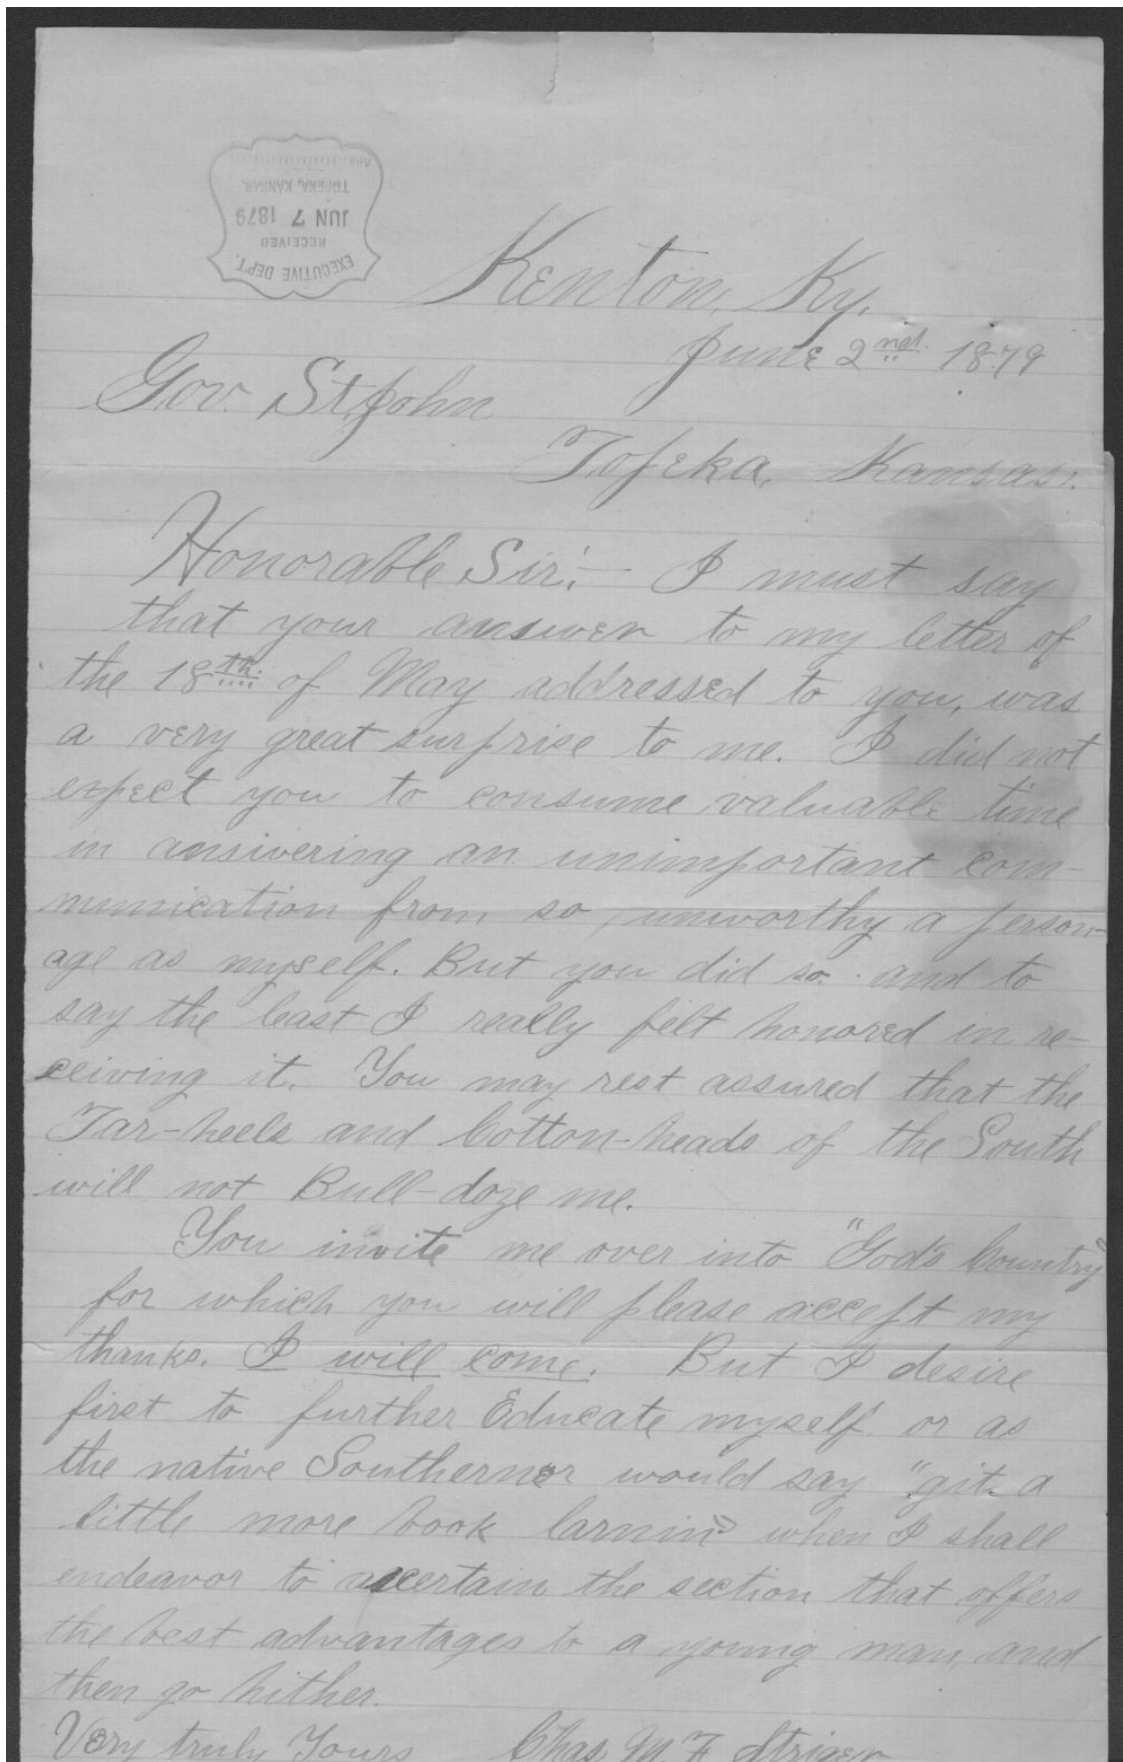 EXECUTIVE DEPT.
RECEIVED
JUN 7 1879
TOPEKA, KANSAS.
Kenton, Ky.
June 2nd. 1879
Gov. St. John
Topeka, Kansas.
Honorable Sir:- I must say
that your answer to my letter of
the 18th. of May addressed to you, was
a very great surprise to me. I did not
expect you to consume valuable time
in answering an unimportant com-
munication from so unworthy a person-
age as myself. But you did so. and to
say the least I really felt honored in re-
ceiving it. You may rest assured that the
Tar-heels and Cotton-heads of the South
will not Bull-doze me.
You invite me over into "God's Country"
for which you will please accept my
thanks. I will come. But I desire
first to further Educate myself or as
the native Southerner would say "git a
little more book larnin" when I shall
endeavor to ascertain the section that offers
the best advantages to a young man, and
then go hither.
Very truly Yours Chas. M. F. Striger